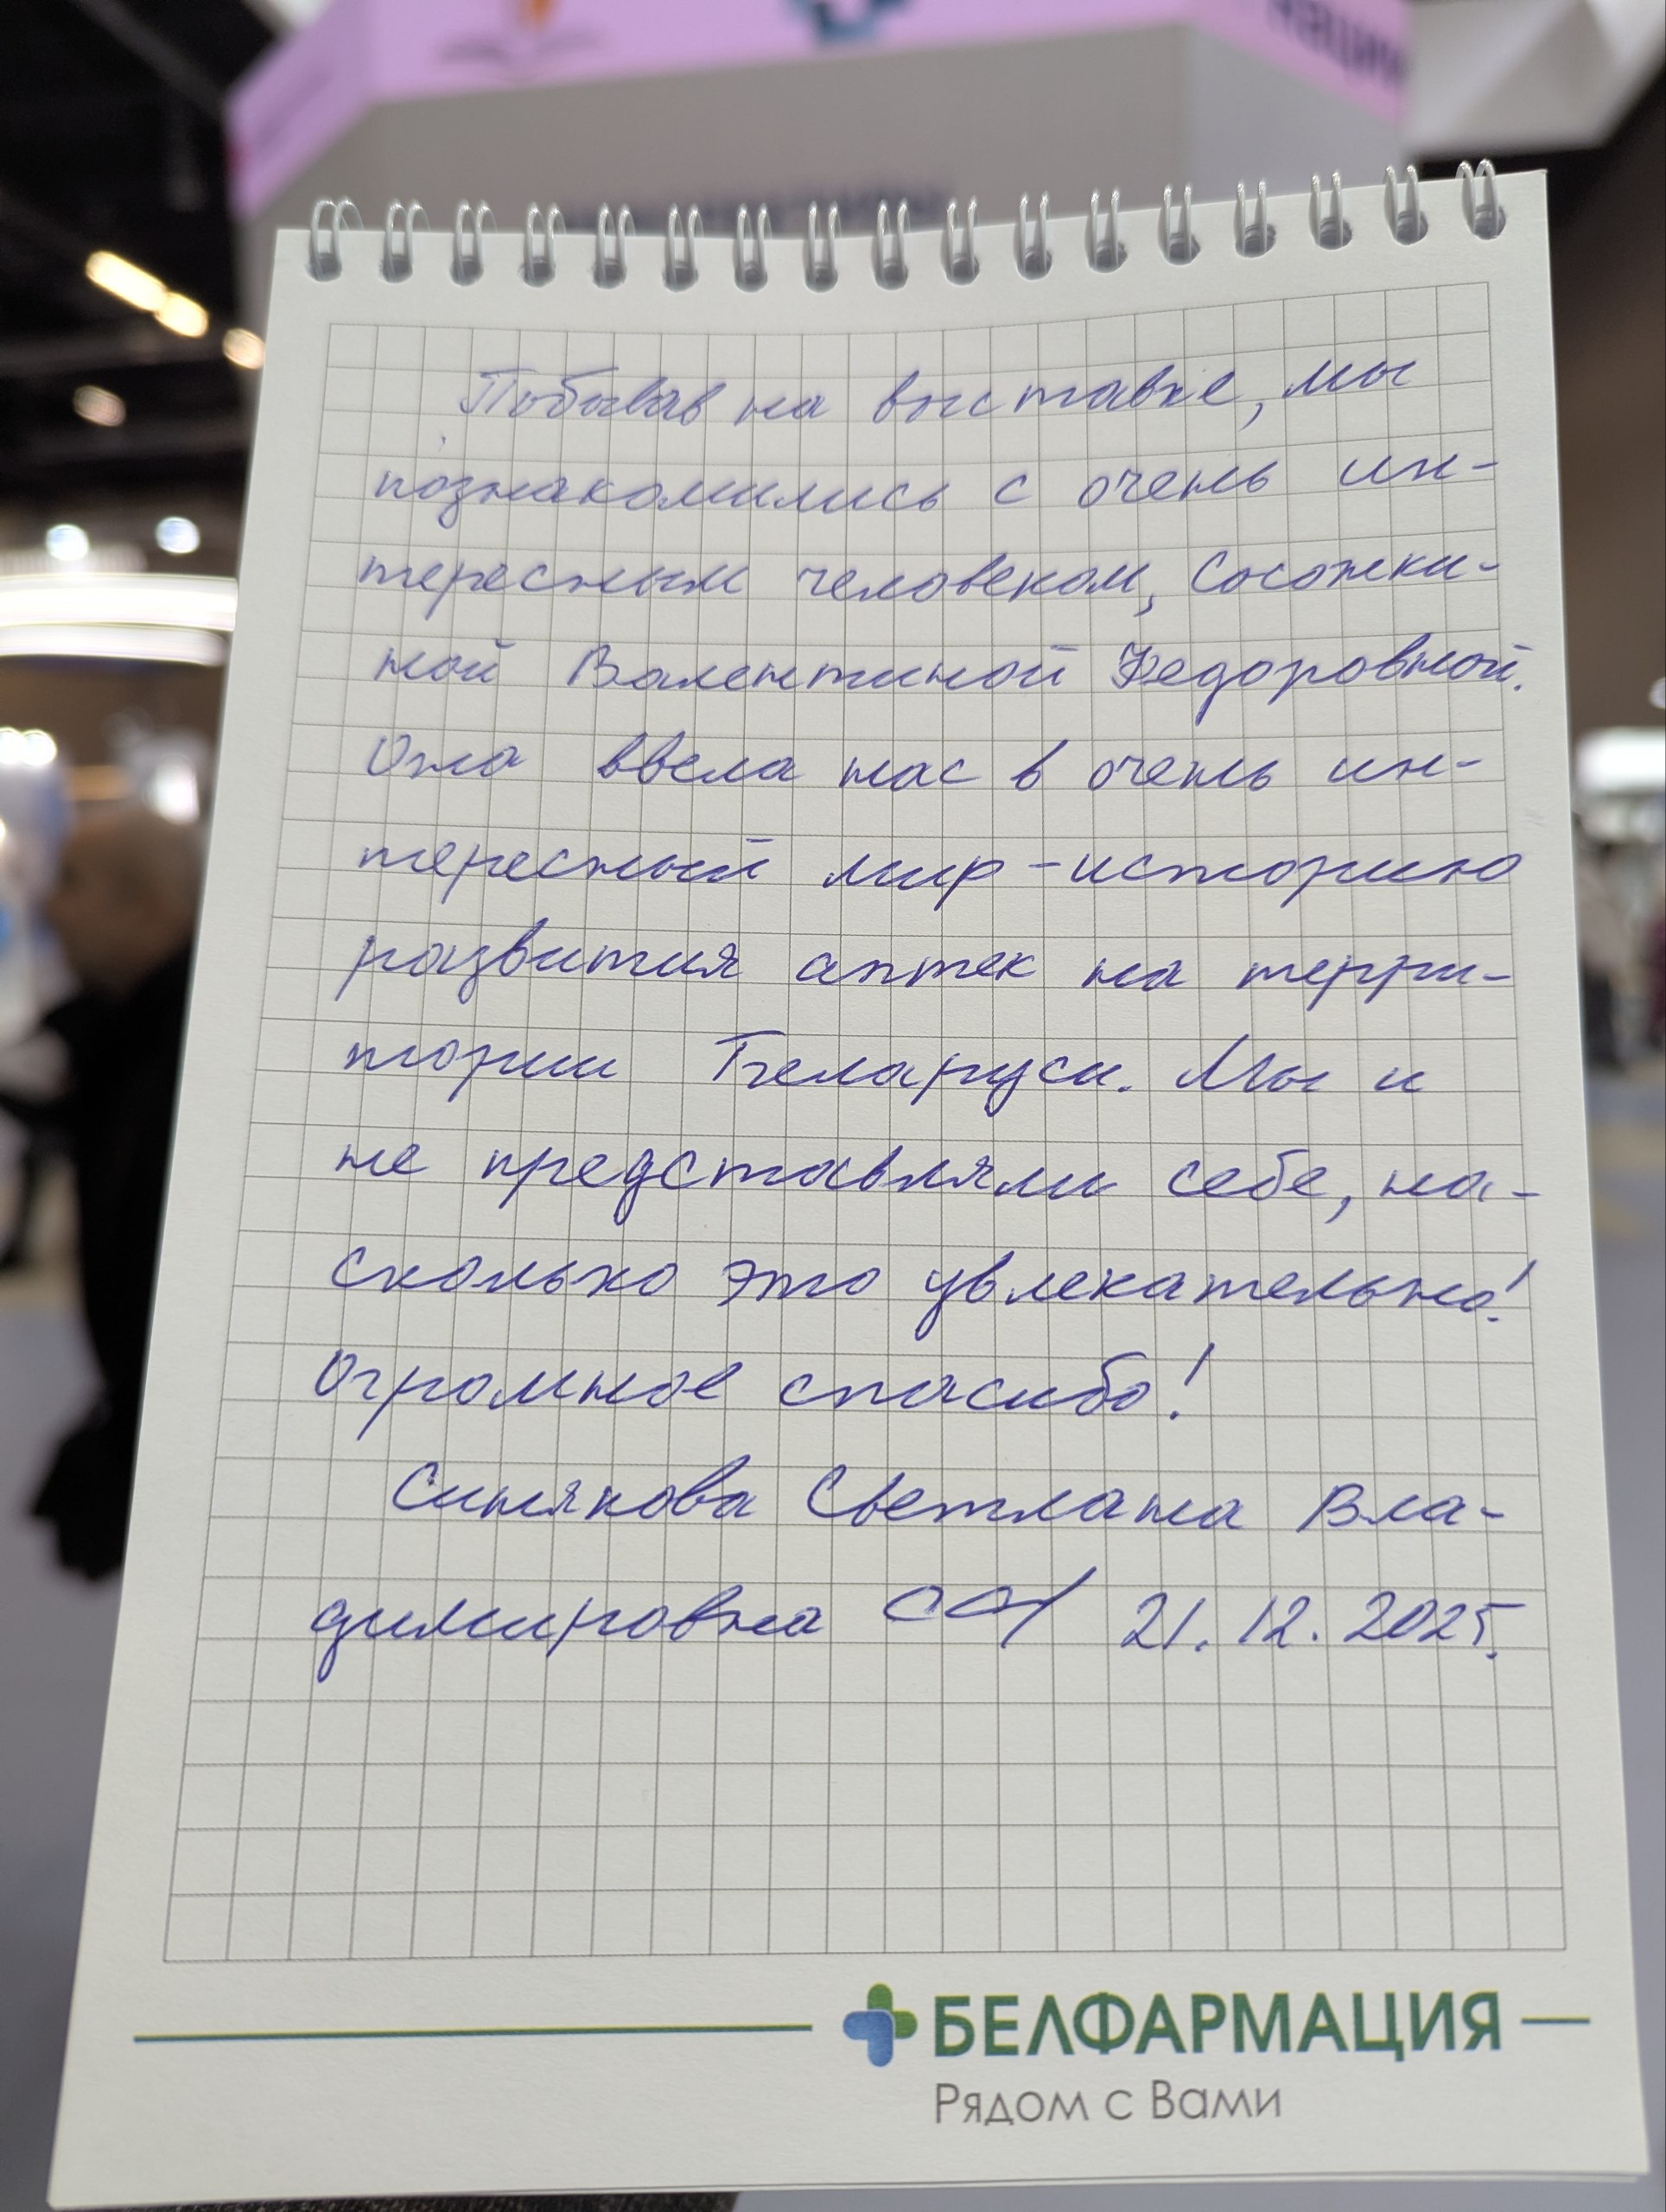 Побывав на выставке, мы
познакомились с очень ин-
тересным человеком, Сосонки-
ной Валентиной Федоровной.
Она ввела нас в очень ин-
тересный мир - историю
развития аптек на терри-
тории Беларуси. Мы и
не представляли себе, на-
сколько это увлекательно!
Огромное спасибо!
Синякова Светлана Вла-
димировна 21.12.2025.
БЕЛФАРМАЦИЯ
Рядом с Вами